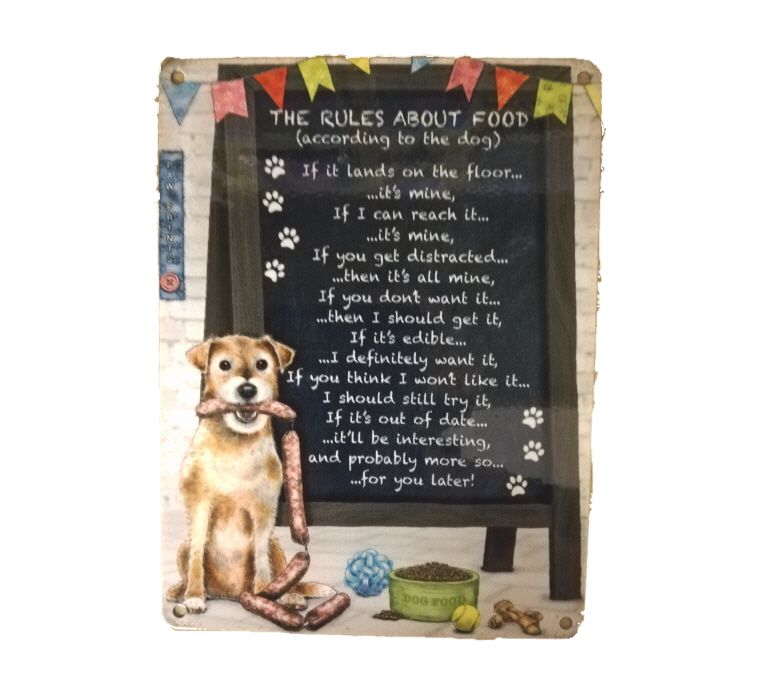 THE RULES ABOUT FOOD
(according to the dog)
If it lands on the floor...
...it's mine,
If I can reach it...
...it's mine,
If you get distracted...
...then it's all mine,
If you don't want it...
...then I should get it,
If it's edible...
...I definitely want it,
If you think I won't like it...
I should still try it,
If it's out of date...
...it'll be interesting,
and probably more so...
...for you later!
PAW PRINTS
DOG FOOD